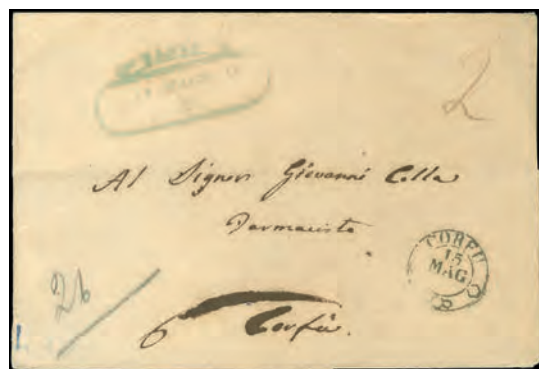 2
Al Signor Giovanni Colla
Farmacista
CORFU
15
MAG
26
Corfù.